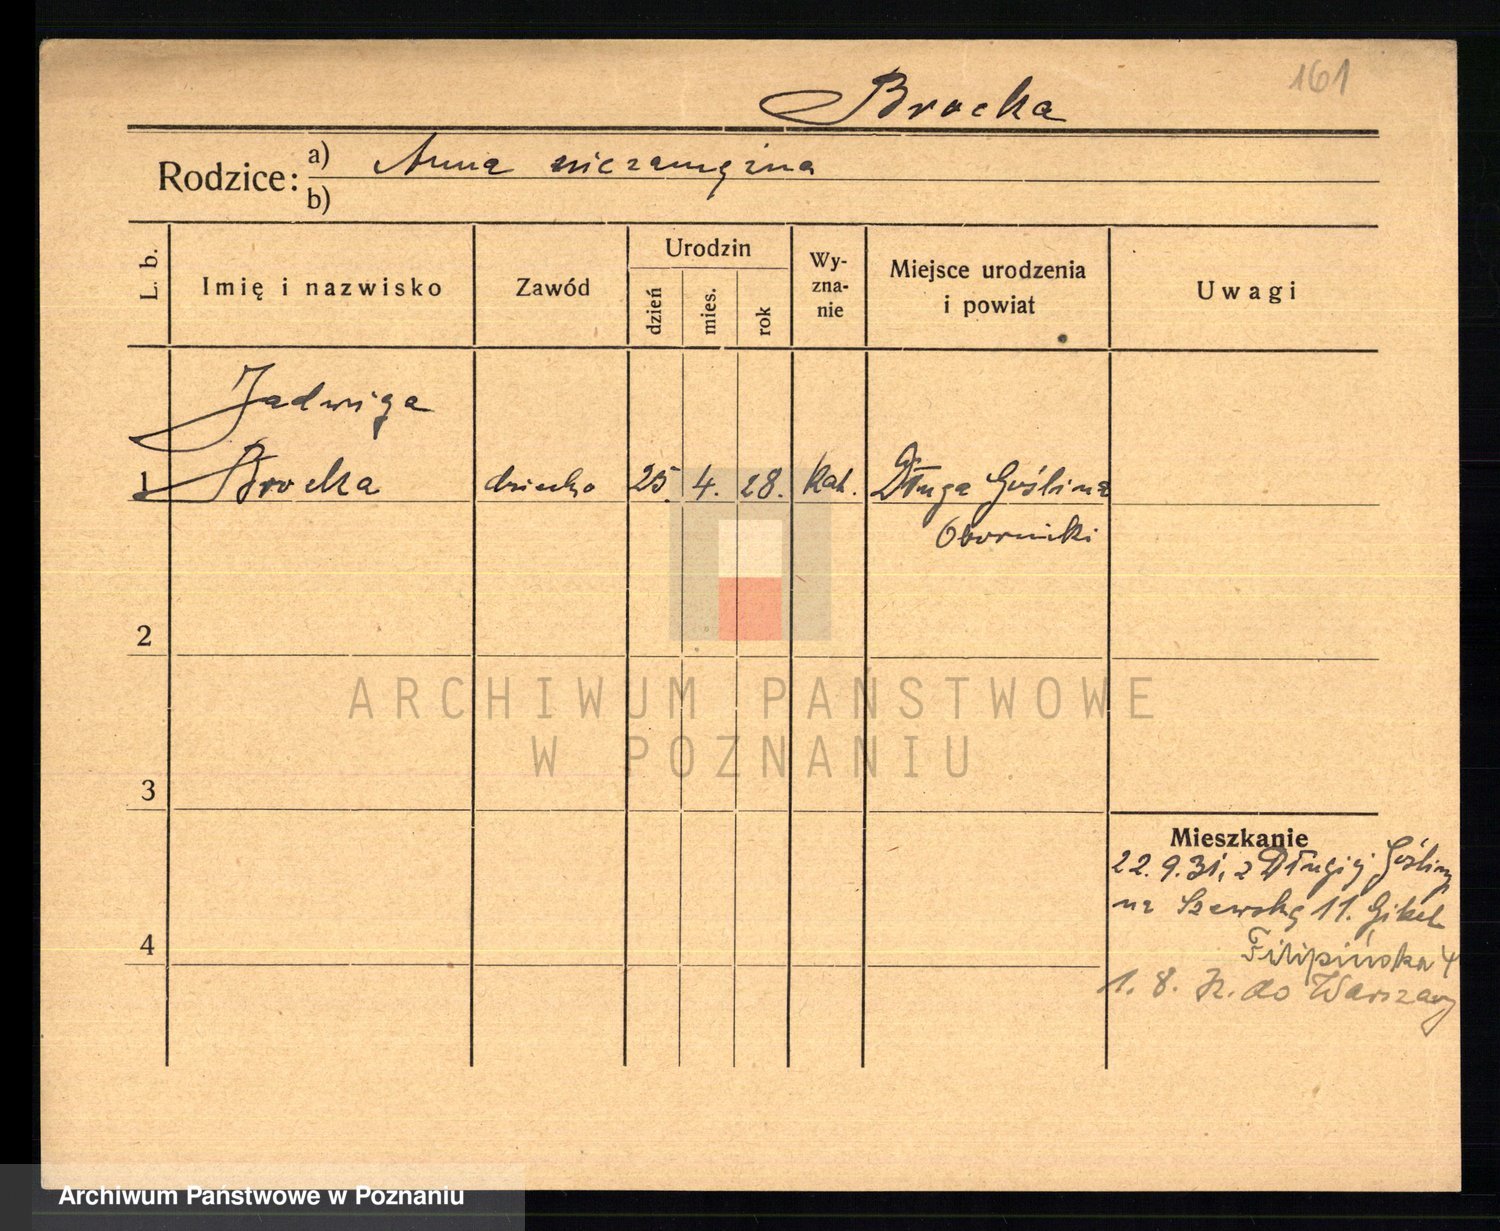 161
Brocka
Rodzice:
a) Anna niezamężna
b)
L. b.
Imię i nazwisko
Zawód
Urodzin
dzień
mies.
rok
Wy-
zna-
nie
Miejsce urodzenia
i powiat
Uwagi
Jadwiga
1 Brocka dziecko 25. 4. 28. kat. Długa Goślina
Oborniki
2
3
4
Mieszkanie
22.9.31, z Długiej Gośliny
na Szewską 11.
Filipińska 4
1. 8. do Warszawy
ARCHIWUM PAŃSTWOWE
W POZNANIU
Archiwum Państwowe w Poznaniu